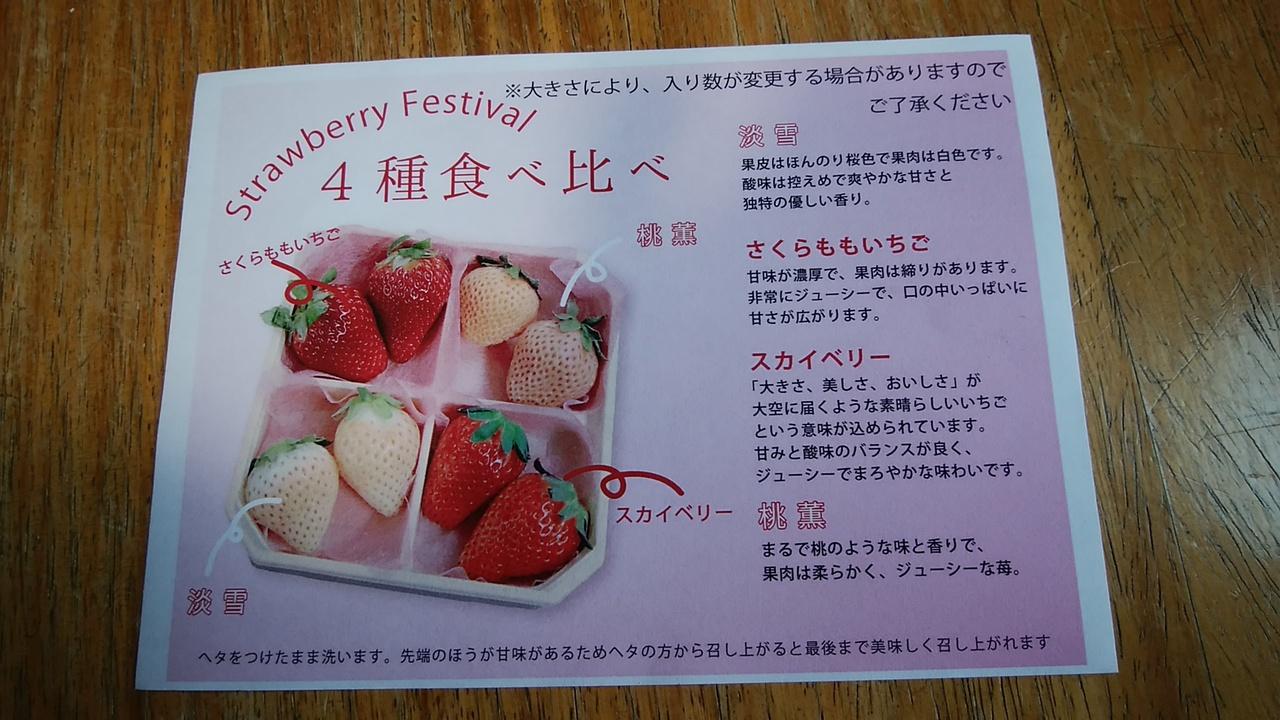 ※大きさにより、入り数が変更する場合がありますので
ご了承ください
Strawberry Festival
４種食べ比べ
さくらももいちご
桃薫
スカイベリー
淡雪
淡雪
果皮はほんのり桜色で果肉は白色です。
酸味は控えめで爽やかな甘さと
独特の優しい香り。
さくらももいちご
甘味が濃厚で、果肉は締りがあります。
非常にジューシーで、口の中いっぱいに
甘さが広がります。
スカイベリー
「大きさ、美しさ、おいしさ」が
大空に届くような素晴らしいいちご
という意味が込められています。
甘みと酸味のバランスが良く、
ジューシーでまろやかな味わいです。
桃薫
まるで桃のような味と香りで、
果肉は柔らかく、ジューシーな苺。
ヘタをつけたまま洗います。先端のほうが甘味があるためヘタの方から召し上がると最後まで美味しく召し上がれます